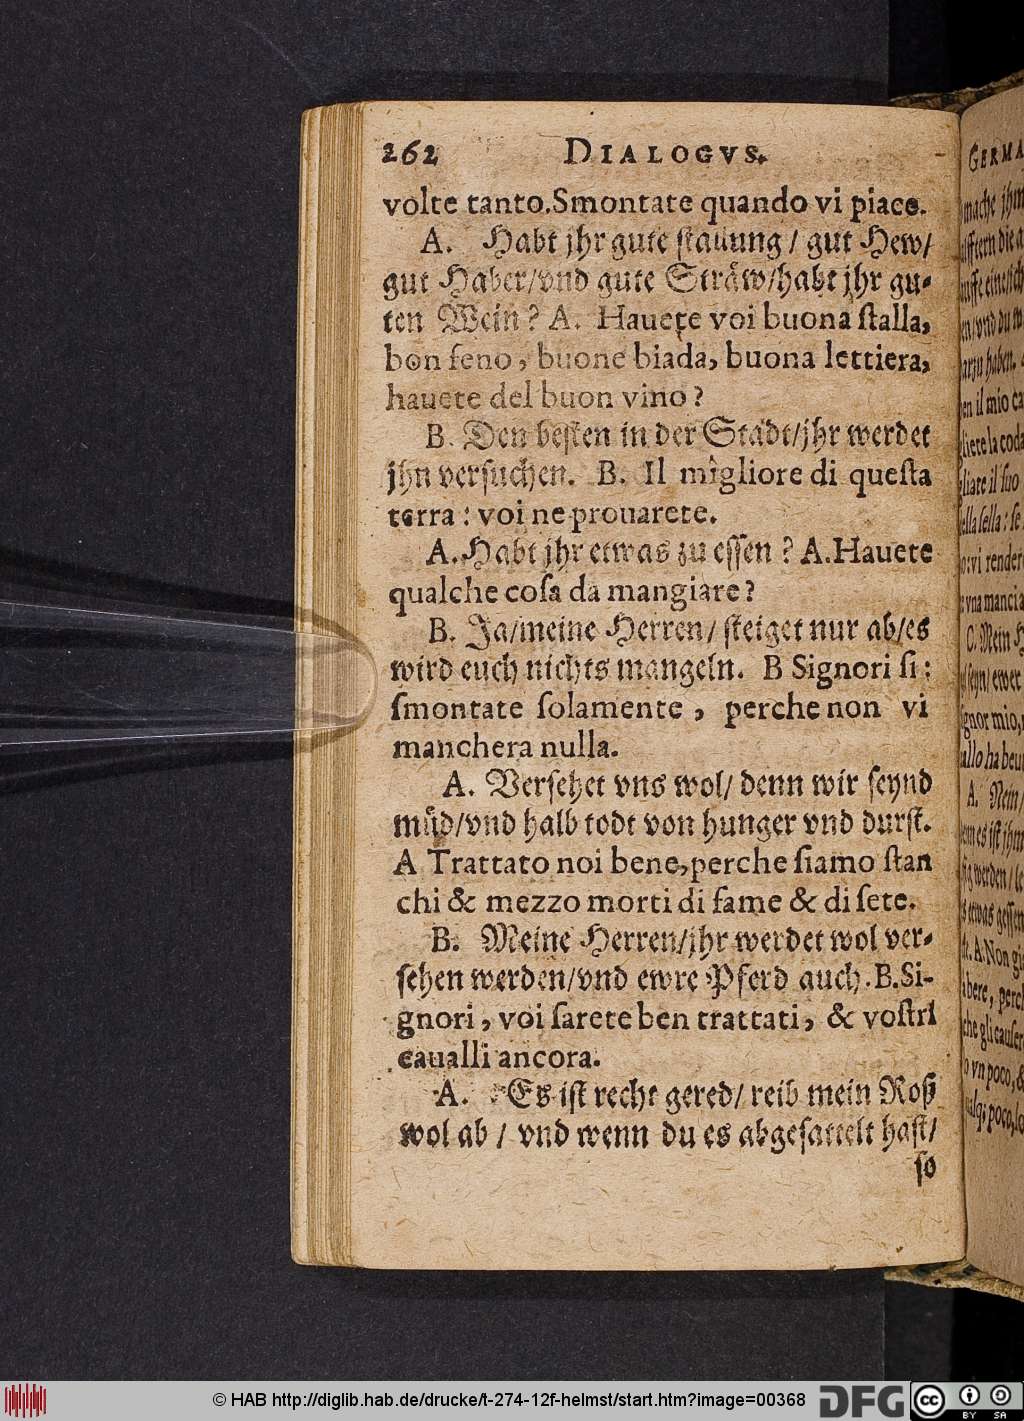 262 DIALOGVS.
volte tanto. Smontate quando vi piace.
A. Habt jhr gute stallung / gut Hew /
gut Haber / vnd gute Sträw / habt jhr gu-
ten Wein ? A. Hauete voi buona ſtalla,
bon feno , buone biada, buona lettiera,
hauete del buon vino ?
B. Den beſten in der Stadt / jhr werdet
jhn verſuchen. B. Il migliore di queſta
terra : voi ne prouarete.
A. Habt jhr etwas zu eſſen ? A. Hauete
qualche coſa da mangiare ?
B. Ja / meine Herren / ſteiget nur ab / es
wird euch nichts mangeln. B Signori ſi :
ſmontate ſolamente , perche non vi
manchera nulla.
A. Verſehet vns wol / denn wir ſeynd
müd / vnd halb todt von hunger vnd durſt.
A Trattato noi bene, perche ſiamo ſtan
chi & mezzo morti di fame & di ſete.
B. Meine Herren / jhr werdet wol ver-
ſehen werden / vnd ewre Pferd auch. B. Si-
gnori , voi ſarete ben trattati , & voſtri
caualli ancora.
A. Es iſt recht gered / reib mein Roß
wol ab / vnd wenn du es abgeſattelt haſt /
ſo
© HAB http://diglib.hab.de/drucke/t-274-12f-helmst/start.htm?image=00368
DFG
cc BY SA